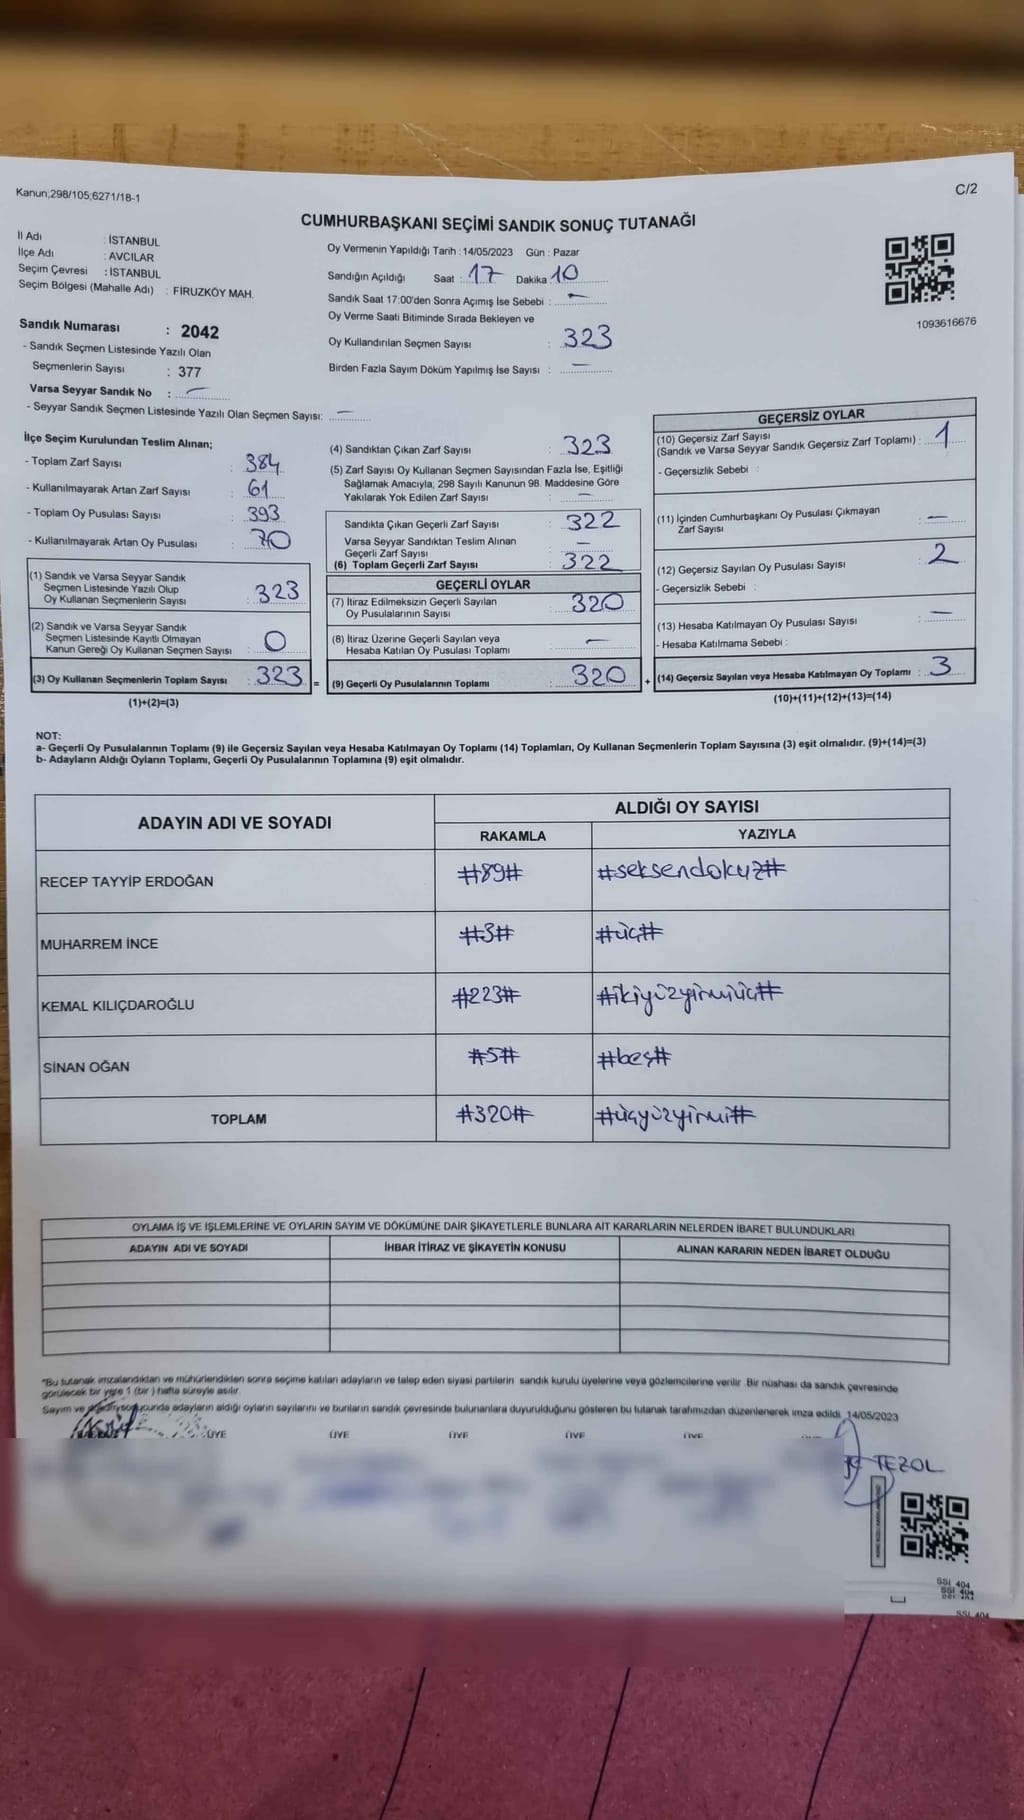 Kanun;298/105;6271/18-1
C/2
CUMHURBAŞKANI SEÇİMİ SANDIK SONUÇ TUTANAĞI
İl Adı : İSTANBUL
İlçe Adı : AVCILAR
Seçim Çevresi : İSTANBUL
Seçim Bölgesi (Mahalle Adı) : FİRUZKÖY MAH.
Oy Vermenin Yapıldığı Tarih : 14/05/2023 Gün : Pazar
Sandığın Açıldığı Saat : 17 Dakika : 10
Sandık Saat 17:00'den Sonra Açımış İse Sebebi : —
Oy Verme Saati Bitiminde Sırada Bekleyen ve
Oy Kullandırılan Seçmen Sayısı : 323
Birden Fazla Sayım Döküm Yapılmış İse Sayısı : —
1093616676
Sandık Numarası : 2042
- Sandık Seçmen Listesinde Yazılı Olan
Seçmenlerin Sayısı : 377
Varsa Seyyar Sandık No : —
- Seyyar Sandık Seçmen Listesinde Yazılı Olan Seçmen Sayısı: —
İlçe Seçim Kurulundan Teslim Alınan;
- Toplam Zarf Sayısı : 384
- Kullanılmayarak Artan Zarf Sayısı : 61
- Toplam Oy Pusulası Sayısı : 393
- Kullanılmayarak Artan Oy Pusulası : 70
(1) Sandık ve Varsa Seyyar Sandık
Seçmen Listesinde Yazılı Olup
Oy Kullanan Seçmenlerin Sayısı : 323
(2) Sandık ve Varsa Seyyar Sandık
Seçmen Listesinde Kayıtlı Olmayan
Kanun Gereği Oy Kullanan Seçmen Sayısı : 0
(3) Oy Kullanan Seçmenlerin Toplam Sayısı : 323 =
(1)+(2)=(3)
(4) Sandıktan Çıkan Zarf Sayısı : 323
(5) Zarf Sayısı Oy Kullanan Seçmen Sayısından Fazla İse, Eşitliği
Sağlamak Amacıyla; 298 Sayılı Kanunun 98. Maddesine Göre
Yakılarak Yok Edilen Zarf Sayısı : —
Sandıkta Çıkan Geçerli Zarf Sayısı : 322
Varsa Seyyar Sandıktan Teslim Alınan
Geçerli Zarf Sayısı : —
(6) Toplam Geçerli Zarf Sayısı : 322
GEÇERLİ OYLAR
(7) İtiraz Edilmeksizin Geçerli Sayılan
Oy Pusulalarının Sayısı : 320
(8) İtiraz Üzerine Geçerli Sayılan veya
Hesaba Katılan Oy Pusulası Toplamı : —
(9) Geçerli Oy Pusulalarının Toplamı : 320 +
GEÇERSİZ OYLAR
(10) Geçersiz Zarf Sayısı
(Sandık ve Varsa Seyyar Sandık Geçersiz Zarf Toplamı) : 1
- Geçersizlik Sebebi :
(11) İçinden Cumhurbaşkanı Oy Pusulası Çıkmayan
Zarf Sayısı : —
(12) Geçersiz Sayılan Oy Pusulası Sayısı : 2
- Geçersizlik Sebebi :
(13) Hesaba Katılmayan Oy Pusulası Sayısı : —
- Hesaba Katılmama Sebebi :
(14) Geçersiz Sayılan veya Hesaba Katılmayan Oy Toplamı : 3
(10)+(11)+(12)+(13)=(14)
NOT:
a- Geçerli Oy Pusulalarının Toplamı (9) ile Geçersiz Sayılan veya Hesaba Katılmayan Oy Toplamı (14) Toplamları, Oy Kullanan Seçmenlerin Toplam Sayısına (3) eşit olmalıdır. (9)+(14)=(3)
b- Adayların Aldığı Oyların Toplamı, Geçerli Oy Pusulalarının Toplamına (9) eşit olmalıdır.
ADAYIN ADI VE SOYADI ALDIĞI OY SAYISI
RAKAMLA YAZIYLA
RECEP TAYYİP ERDOĞAN #89# #seksendokuz#
MUHARREM İNCE #3# #üç#
KEMAL KILIÇDAROĞLU #223# #ikiyüzyirmiüç#
SİNAN OĞAN #5# #beş#
TOPLAM #320# #üçyüzyirmi#
OYLAMA İŞ VE İŞLEMLERİNE VE OYLARIN SAYIM VE DÖKÜMÜNE DAİR ŞİKAYETLERLE BUNLARA AİT KARARLARIN NELERDEN İBARET BULUNDUKLARI
ADAYIN ADI VE SOYADI İHBAR İTİRAZ VE ŞİKAYETİN KONUSU ALINAN KARARIN NEDEN İBARET OLDUĞU
"Bu tutanak imzalandıktan ve mühürlendikten sonra seçime katılan adayların ve talep eden siyasi partilerin sandık kurulu üyelerine veya gözlemcilerine verilir .Bir nüshası da sandık çevresinde
görülecek bir yere 1 (bir ) hafta süreyle asılır.
Sayım ve sonucunda adayların aldığı oyların sayılarını ve bunların sandık çevresinde bulunanlara duyurulduğunu gösteren bu tutanak tarafımızdan düzenlenerek imza edildi. 14/05/2023
ÜYE ÜYE ÜYE ÜYE ÜYE
TEZOL
SSI 404
SSI 404
SSI 404